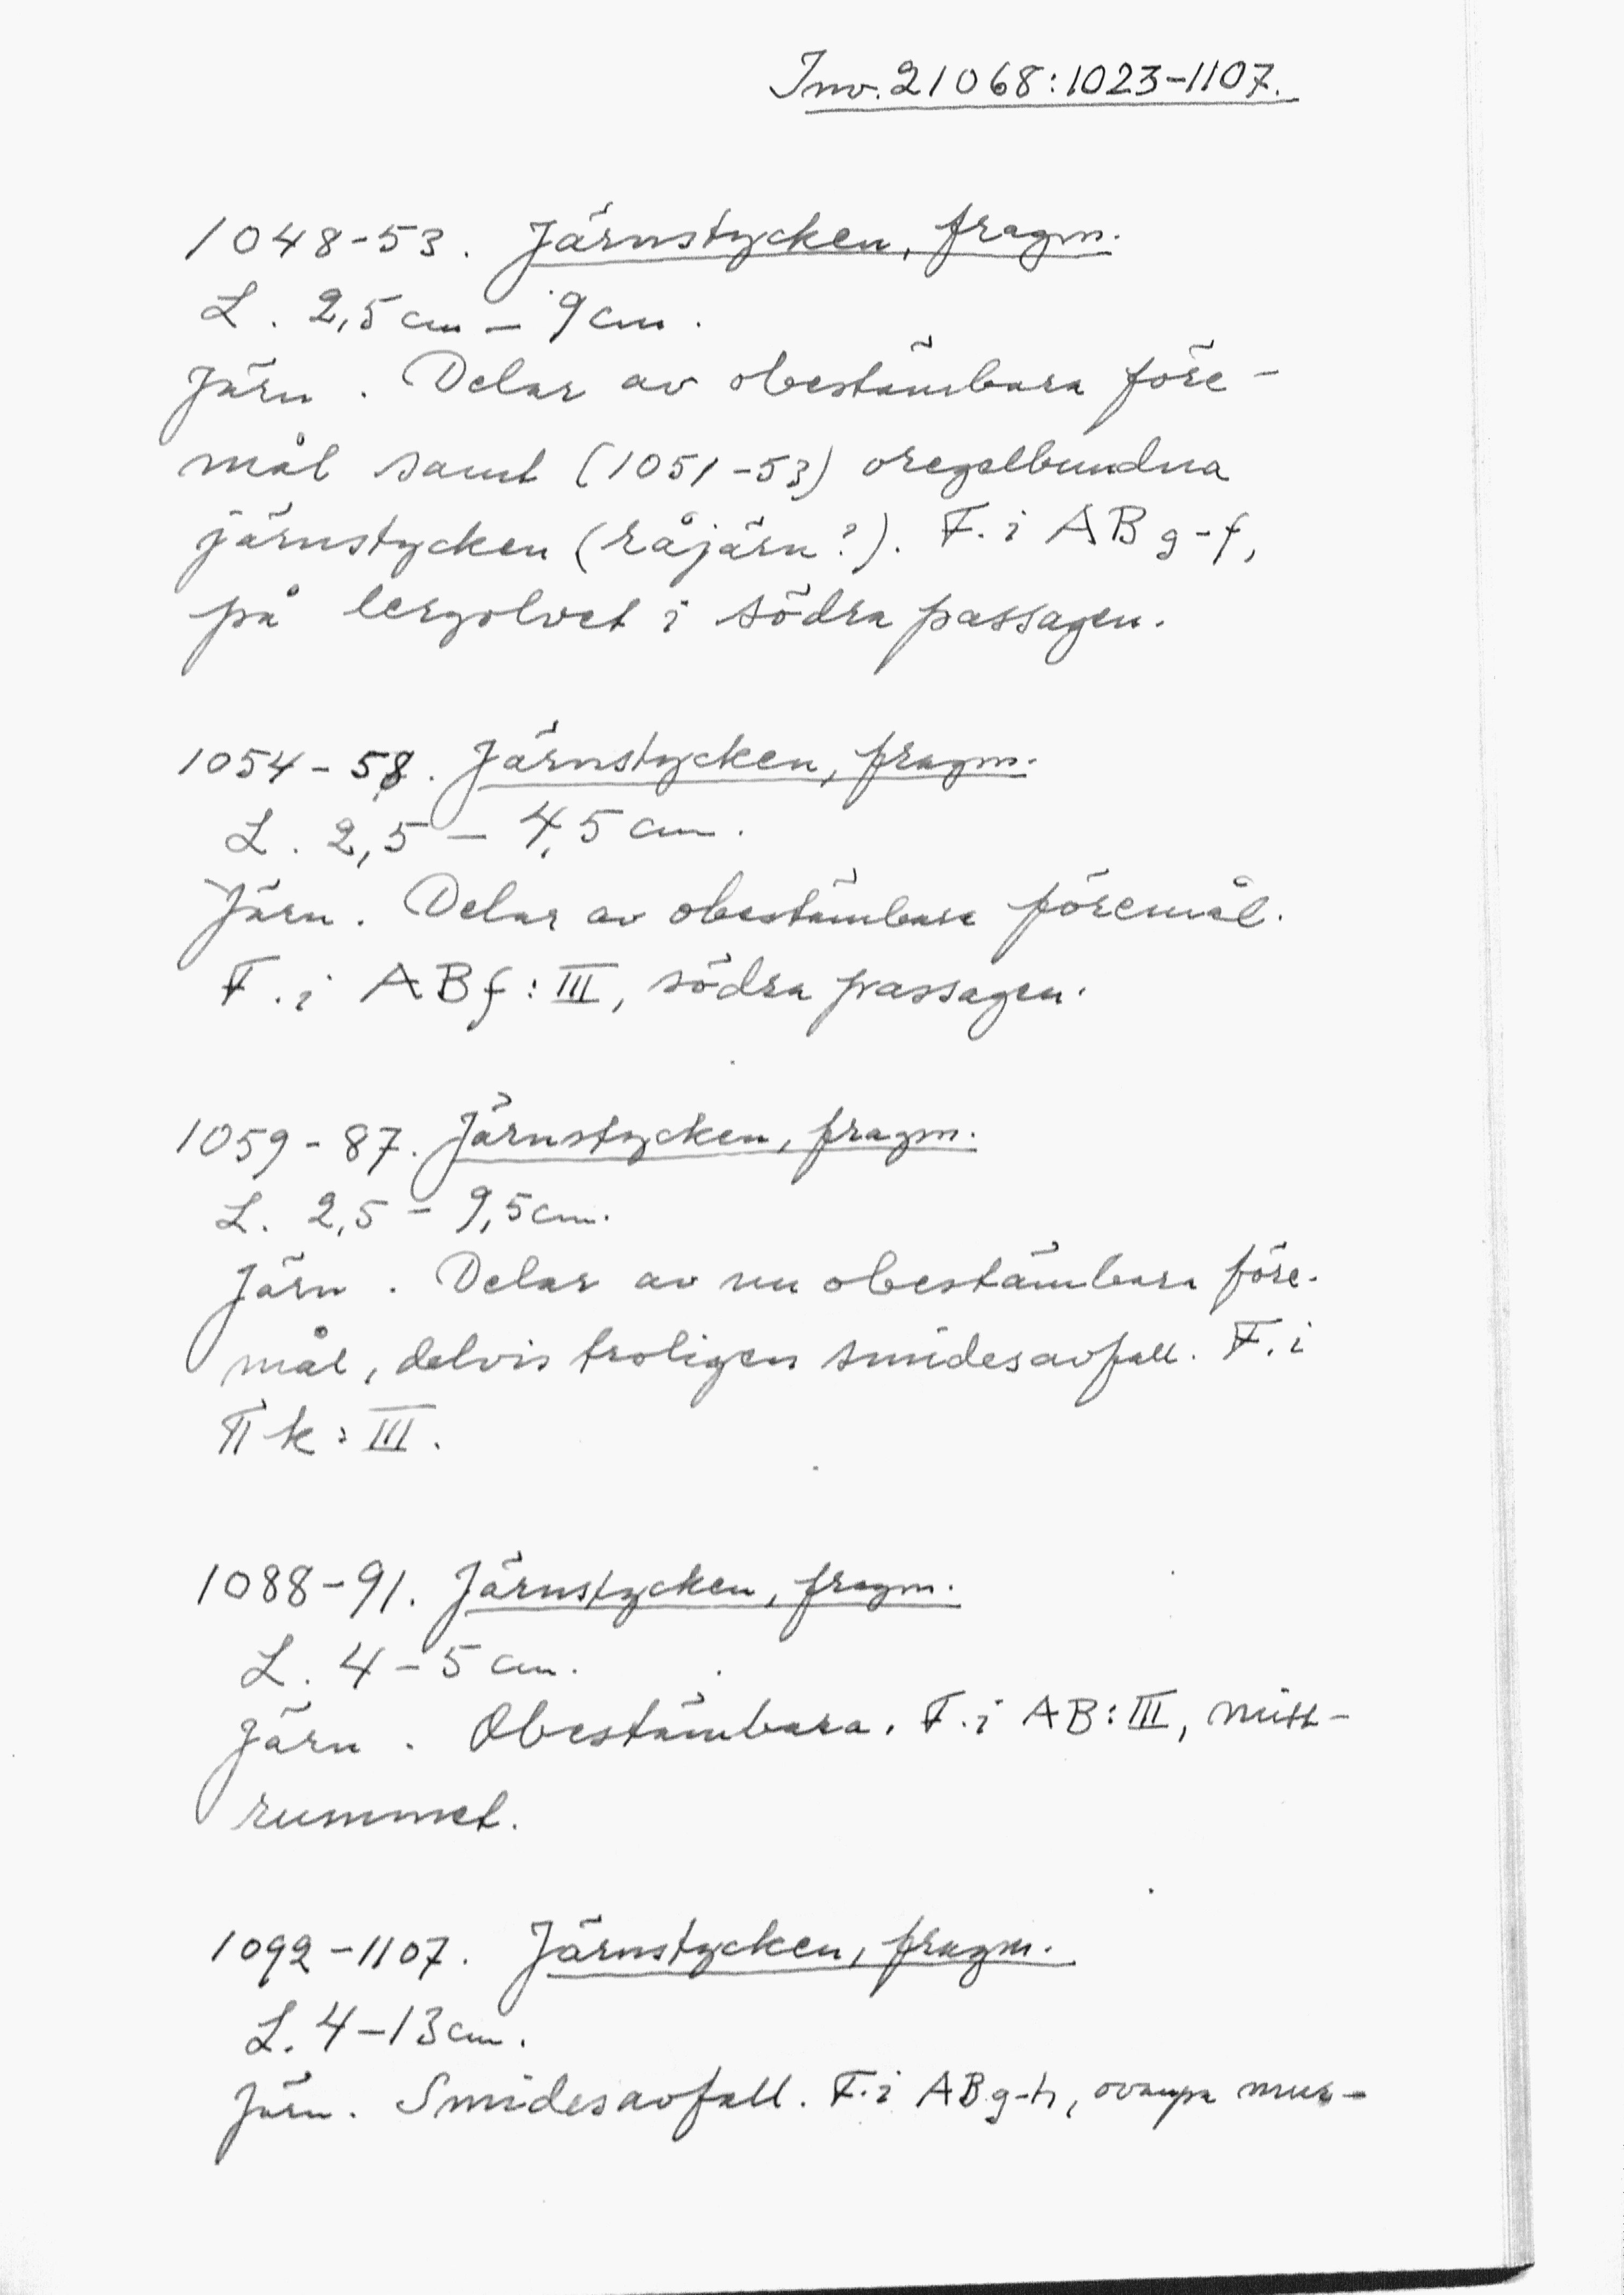 Inv. 21068:1023-1107.
1048-53. Järnstycken, fragm.
L. 2,5 cm - 9 cm.
Järn. Delar av obestämbara före-
mål samt (1051-53) oregelbundna
järnstycken (råjärn?). F. i AB g-f,
på lergolvet i södra passagen.
1054-58. Järnstycken, fragm.
L. 2,5 - 4,5 cm.
Järn. Delar av obestämbara föremål.
F. i AB f: III, södra passagen.
1059-87. Järnstycken, fragm.
L. 2,5 - 9,5 cm.
Järn. Delar av nu obestämbara före-
mål, delvis troligen smidesavfall. F. i
k: III.
1088-91. Järnstycken, fragm.
L. 4-5 cm.
Järn. Obestämbara. F. i AB: III, mitt-
rummet.
1092-1107. Järnstycken, fragm.
L. 4-13 cm.
Järn. Smidesavfall. F. i AB g-h, ovanpå mur-